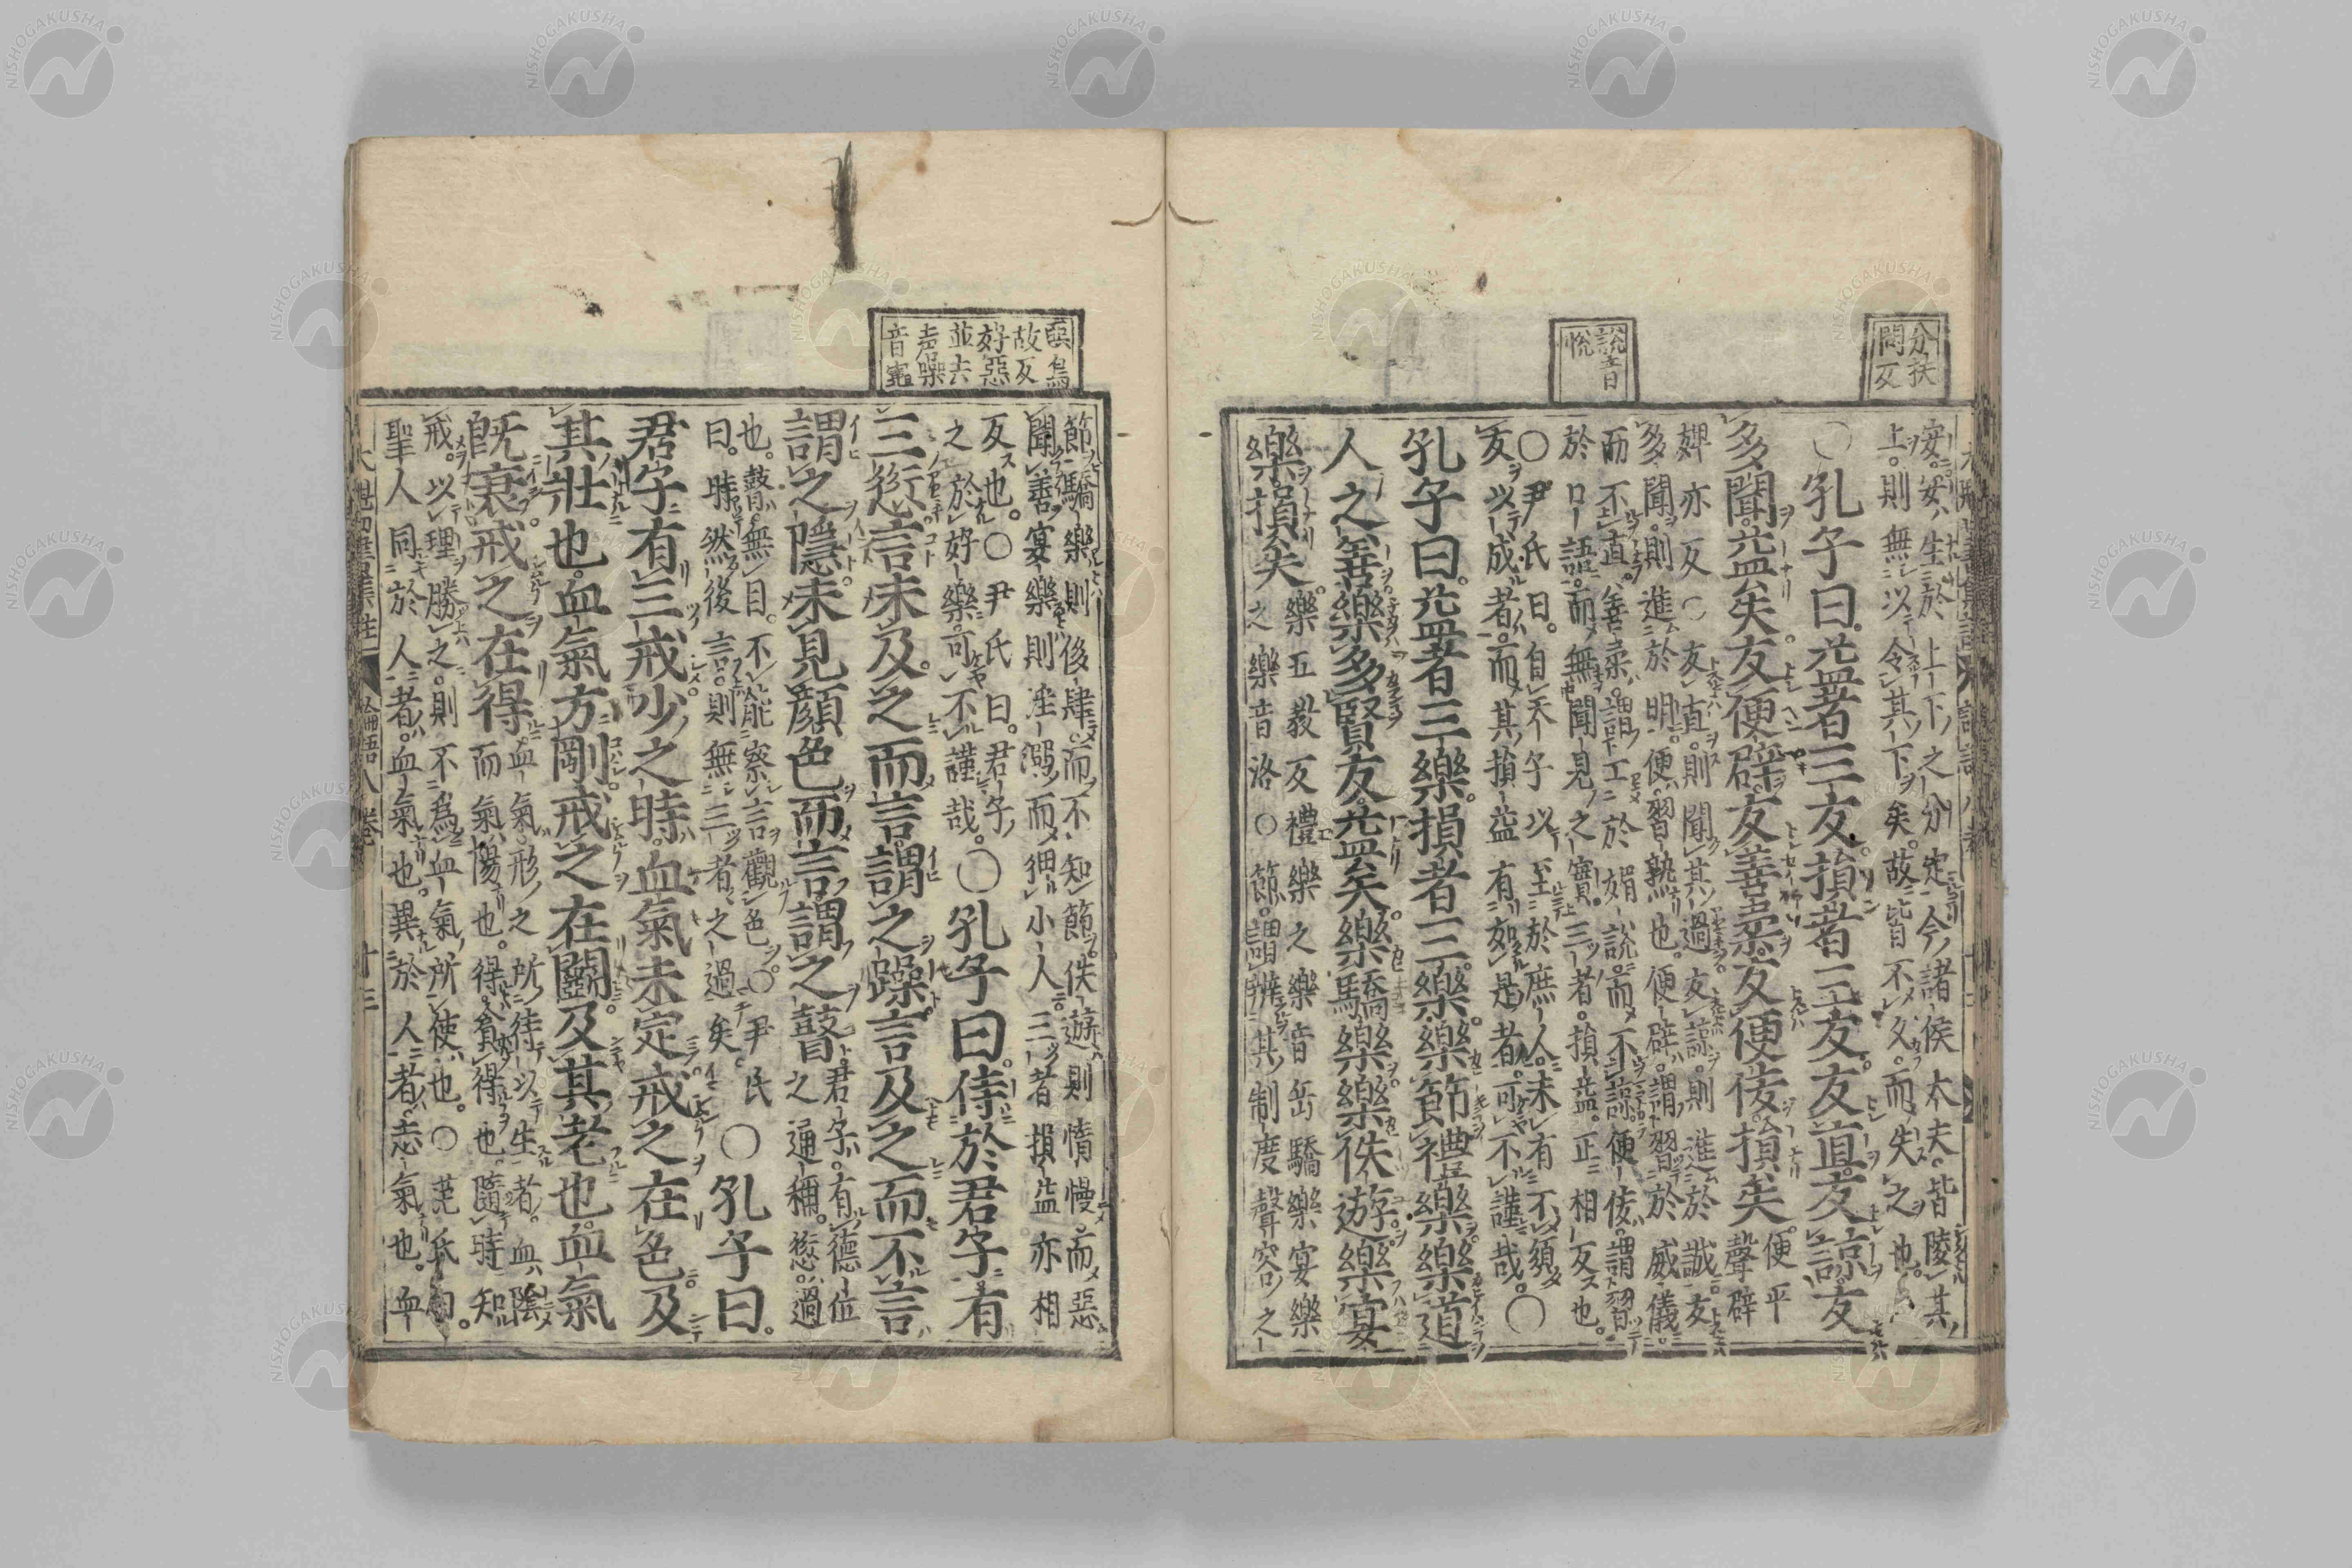 分扶
問反
安。安生於上下之分定。今諸侯大夫。皆陵其
上。則無以令其下矣。故皆不久而失之也。
○孔子曰。益者三友。損者三友。友直。友諒。友
多聞。益矣。友便辟。友善柔。友便佞。損矣。
便平
聲辟
婢亦反○友直。則聞其過。友諒。則進於誠。友
多聞。則進於明。便習熟也。便辟。謂習於威儀。
而不直。善柔。謂工於媚說。而不諒。便佞。謂習
於口語。而無聞見之實。三者。損益。正相反也。
說音
悅
○尹氏曰。自天子以至於庶人。未有不須
友以成者。而其損益有如是者。可不謹哉。○
孔子曰。益者三樂。損者三樂。樂節禮樂。樂道
人之善。樂多賢友。益矣。樂驕樂。樂佚遊。樂宴
樂。損矣。
樂五教反禮樂之樂音岳驕樂宴樂
之樂音洛○節。謂辨其制度聲容之
節。驕樂則侈肆。而不知節。佚遊。則惰慢。而惡
聞善。宴樂則淫溺。而狎小人。三者損益亦相
反也。○尹氏曰。君子
之於好樂。可不謹哉。
惡烏
故反
好惡
並去
声躁
音竈
○孔子曰。侍於君子。有
三愆。言未及之而言。謂之躁。言及之而不言
謂之隱。未見顏色而言。謂之瞽。
君子。有德位
之通稱。愆。過
也。瞽。無目。不能察言觀色。○尹氏
曰。時然後言。則無三者之過矣。
○孔子曰。
君子有三戒。少之時。血氣未定。戒之在色。及
其壯也。血氣方剛。戒之在鬭。及其老也。血氣
既衰。戒之在得。
血氣。形之所待以生者。血陰
而氣陽也。得。貪得也。隨時知
戒。以理勝之。則不為血氣所使也。○范氏曰。
聖人同於人者。血氣也。異於人者。志氣也。血
論語八卷
十三